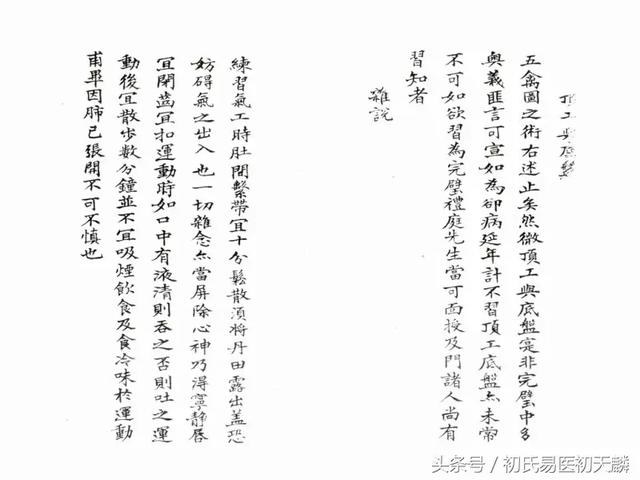 頂工與底盤
五禽圖之術右述止矣然微頂工與底盤寔非完璧中多
奥義匪言可宣如為卻病延年計不習頂工底盤亦未常
不可如欲習為完璧禮庭先生當可面授及門諸人尚有
習知者
雜說
練習氣工時肚閒繫帶宜十分鬆散須將丹田露出蓋恐
妨碍氣之出入也一切雜念亦當屏除心神乃淂寧靜唇
宜閉齒宜扣運動時如口中有液清則吞之否則吐之運
動後宜散步数分鐘並不宜吸煙飲食及食冷味於運動
甫畢因肺已張開不可不慎也
头条号／初氏易医初天麟